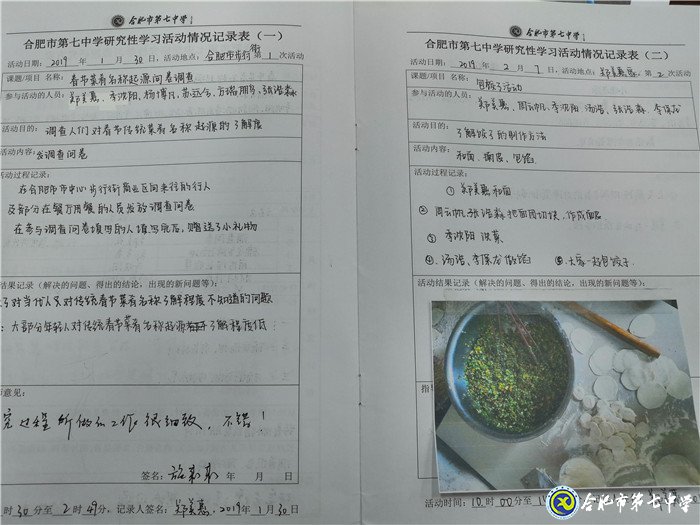 合肥市第七中学
合肥市第七中学研究性学习活动情况记录表（一）
活动日期：2019 年 1 月 30 日，活动地点：合肥市步行街 第 1 次活动
课题/项目 名称：春节菜肴名称起源问卷调查
参与活动的人员：
郑美惠，李沈阳，杨博凡，苏远仓，方福朋，张浩淼
活动目的：调查人们对春节传统菜肴名称起源的了解度
活动内容：发调查问卷
活动过程记录：
在合肥市市中心步行街商业区间来往的行人
及部分在餐厅用餐的人员发放调查问卷
在参与调查问卷填写的人填写完后，赠送了小礼物
活动结果记录（解决的问题、得出的结论，出现的新问题等）：
了对当代人又对传统春节菜肴名称了解程度不知道的问题
：大部分年轻人对传统春节菜肴名称起源了解程度低
意见：
究过程所做的工作很细致，不错！
签名： 年 月 日
时 30 分至 2 时 49 分，记录人签名：郑美惠，2019 年 1 月 30 日
合肥市第七中学
合肥市第七中学研究性学习活动情况记录表（二）
活动日期：2019 年 2 月 7 日，活动地点：郑美惠家 第 2 次活动
课题/项目 名称：包饺子活动
参与活动的人员：
郑美惠，周云帆，李沈阳，汤浩，张浩淼，李保龙
活动目的：
了解饺子的制作方法
活动内容：
和面、擀皮、包馅
活动过程记录：
① 郑美惠和面
② 周云帆，张浩淼把面团切块，作成面皮
③ 李沈阳 洗菜
④ 汤浩、李保龙做馅 ⑤ 大家一起包饺子
活动结果记录（解决的问题、得出的结论，出现的新问题等）：
指
活动时间：10 时 00 分至
合肥市第七中学